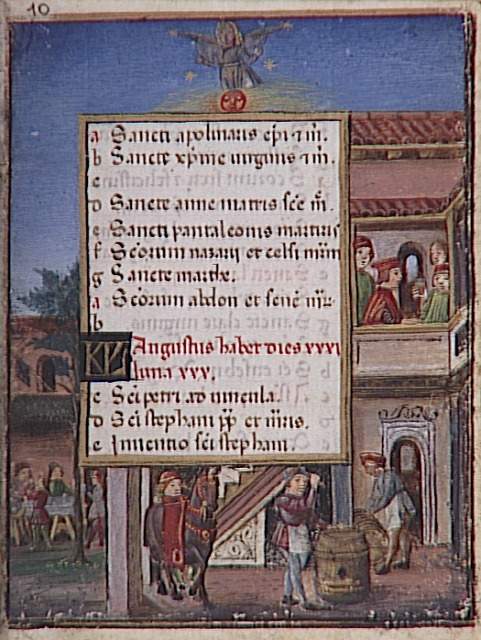 10
a Sancti apolinaris ep̄i & m̄.
b Sancte xp̄ine uirginis & m̄.
c
d Sancte anne matris sc̄e m̄.
e Sancti pantaleonis martiris
f Sc̄orum nazarij et celsi
g Sancte marthe.
a Sc̄orum abdon et senē
b
KL Augustus habet dies xxxi
luna xxx.
c Sc̄i petri ad uincula.
d Sc̄i stephani pp̄ et m̄ris.
e Inuentio sc̄i stephani.